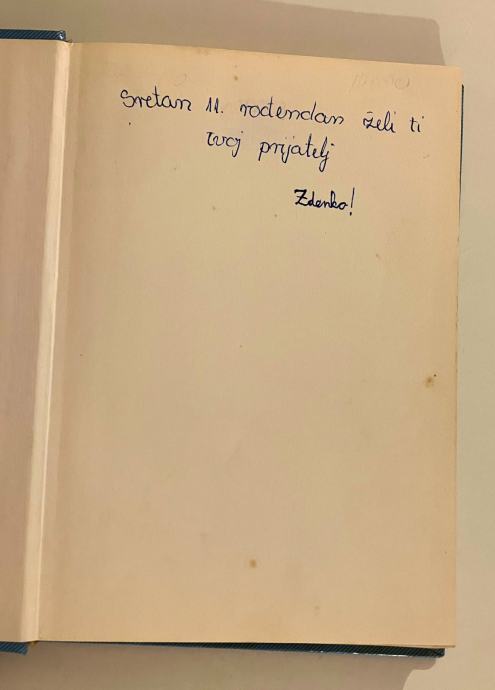 Sretan 11. rođendan želi ti
tvoj prijatelj
Zdenko!